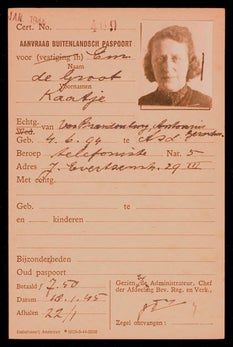 JAN 1945
Cert. No.
AANVRAAG BUITENLANDSCH PASPOORT
voor (vestiging in) Eng.
Naam
de Groot
Voornamen
Kaatje
Echtg. van van Brandenburg, Antonius
Wed.
Geb. 4. 6. 94 te A'dam
Beroep telefoniste Nat. 5
Adres J. Evertsenstr. 29 III
Met echtg.
Geb. te
en kinderen
Bijzonderheden
Oud paspoort
Betaald f 7.50
Gezien, de Administrateur, Chef
der Afdeeling Bev. Reg. en Verk.,
Datum 18.1.45
Afhalen 22/1
Zegel ontvangen: